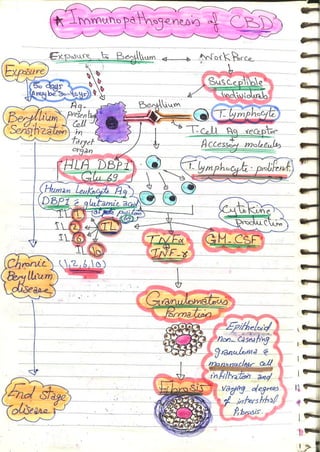 * Immunopathogenesis of CBD
Exposure to Beryllium
Workforce
Exposure
Susceptible
individuals
Beryllium
Sensitization
Ag-
presenting
Cell
in
Target
organ
Beryllium
T. lymphocyte
T-Cell Ag receptor
+
Accessory molecules
HLA DBP1
Glu 69
T. lymphocyte proliferat.
(Human Leukocyte Ag)
DBP1 = glutamic acid
Cytokine
production
IL
IL
IL
(1, 2, 6, 10)
TNFα
+
INF-γ
GM-CSF
Chronic
Beryllium
disease
Granulomatous
formation
Epitheloid
non-caseating
granuloma &
mononuclear cell
infiltration and
varying degrees
of interstitial
fibrosis
Fibrosis
End Stage
disease